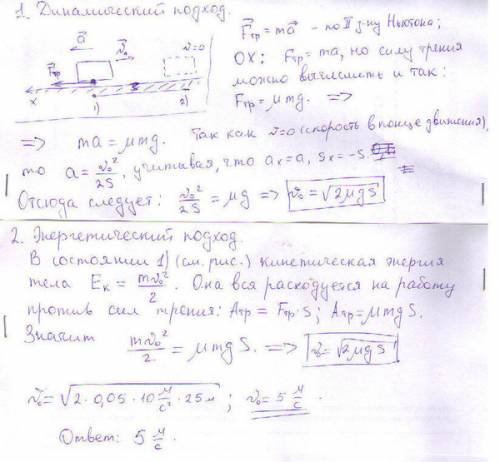 1. Динамический подход.
a
v₀
v=0
Fтр
S
x
1)
2)
Fтр = ma - по II з-ну Ньютона;
OX: Fтр = ma, но силу трения
можно вычислить и так:
Fтр = μmg. =>
=> ma = μmg. Так как v=0 (скорость в конце движения),
то a = v₀²/2S, учитывая, что aₓ=a, Sₓ=-S.
Отсюда следует: v₀²/2S = μg => v₀ = √2μgS
2. Энергетический подход.
В состоянии 1) (см. рис.) кинетическая энергия
тела Eк = mv₀²/2. Она вся расходуется на работу
против сил трения: Aтр = Fтр·S; Aтр = μmgS.
Значит mv₀²/2 = μmgS. => v = √2μgS
v₀ = √2·0,05·10 м/с²·25м ; v₀ = 5 м/с.
Ответ: 5 м/с.